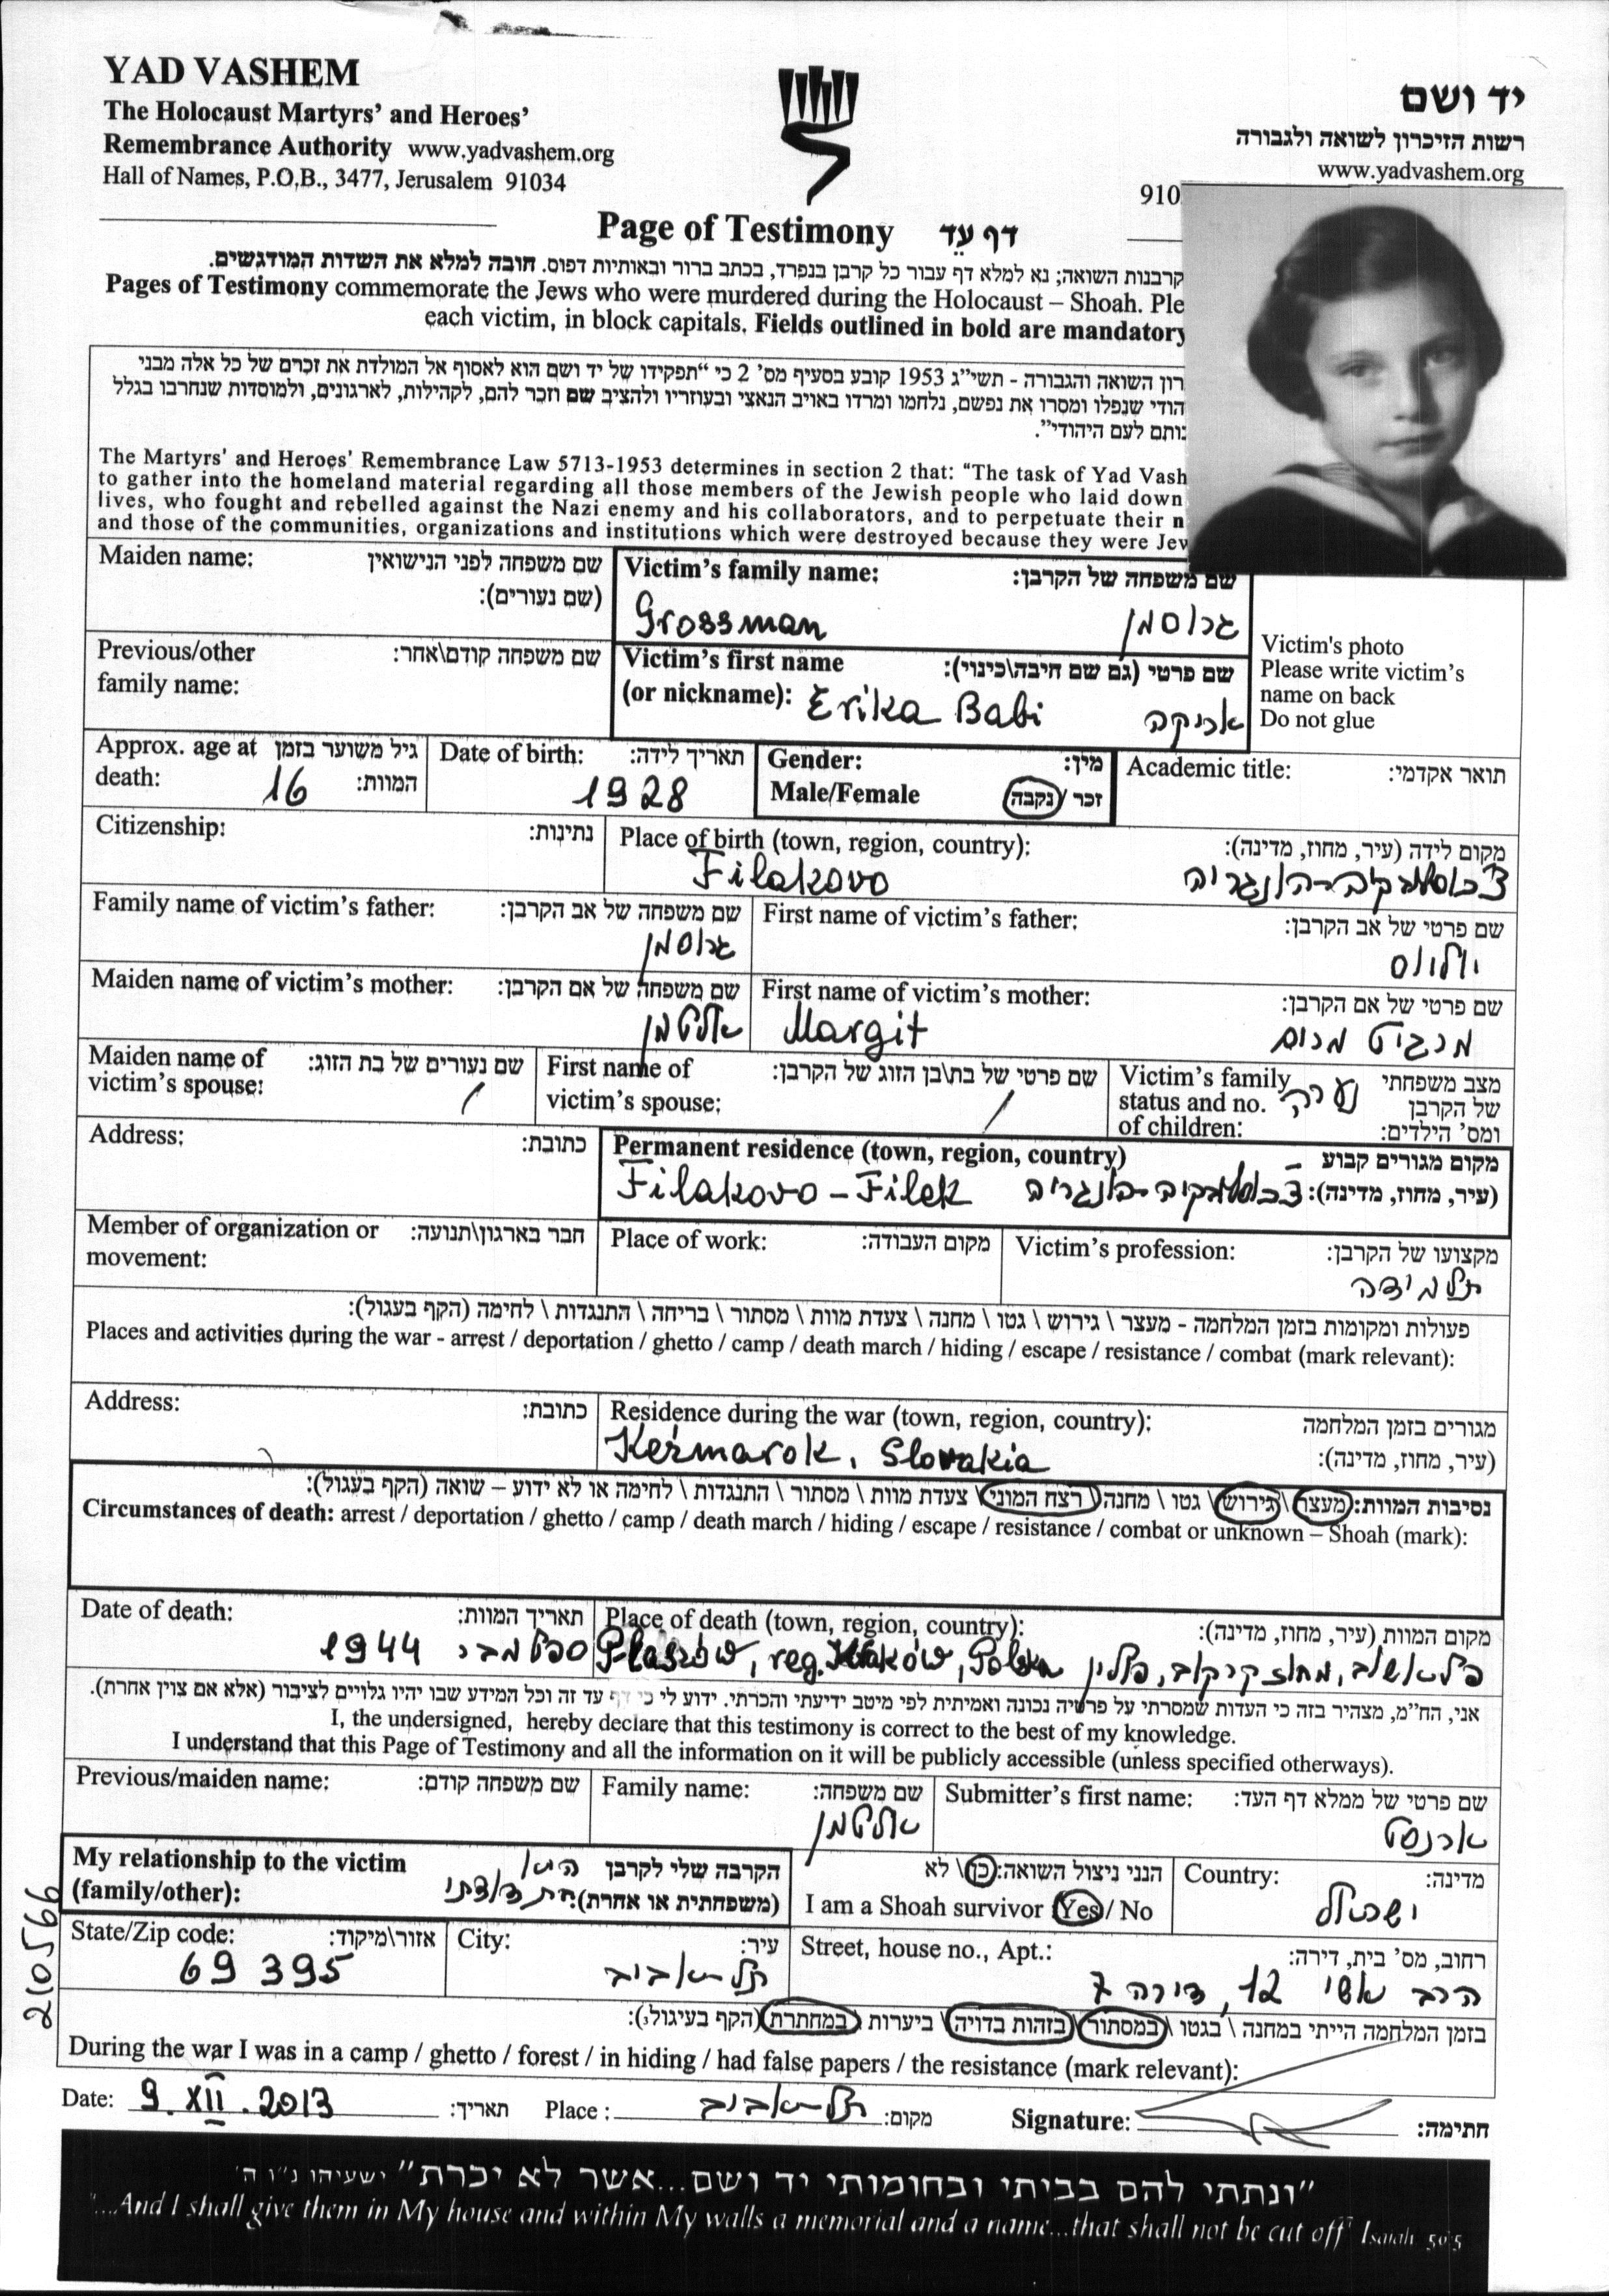 YAD VASHEM
The Holocaust Martyrs' and Heroes'
Remembrance Authority www.yadvashem.org
Hall of Names, P.O.B., 3477, Jerusalem 91034
יד ושם
רשות הזיכרון לשואה ולגבורה
www.yadvashem.org
910
Page of Testimony דף עֵד
קרבנות השואה; נא למלא דף עבור כל קרבן בנפרד, בכתב ברור ובאותיות דפוס. חובה למלא את השדות המודגשים.
Pages of Testimony commemorate the Jews who were murdered during the Holocaust – Shoah. Ple
each victim, in block capitals. Fields outlined in bold are mandatory
רון השואה והגבורה - תשי"ג 1953 קובע בסעיף מס' 2 כי "תפקידו של יד ושם הוא לאסוף אל המולדת את זכרם של כל אלה מבני
הודי שנפלו ומסרו את נפשם, נלחמו ומרדו באויב הנאצי ובעוזריו ולהציב שם וזכר להם, לקהילות, לארגונים, ולמוסדות שנחרבו בגלל
כותם לעם היהודי".
The Martyrs' and Heroes' Remembrance Law 5713-1953 determines in section 2 that: "The task of Yad Vash
to gather into the homeland material regarding all those members of the Jewish people who laid down
lives, who fought and rebelled against the Nazi enemy and his collaborators, and to perpetuate their n
and those of the communities, organizations and institutions which were destroyed because they were Jew
Maiden name: שם משפחה לפני הנישואין
(שם נעורים):
Victim's family name: שם משפחה של הקרבן:
Grossman גרוסמן
Previous/other שם משפחה קודם\אחר:
family name:
Victim's first name שם פרטי (גם שם חיבה\כינוי):
(or nickname): Erika Babi אריקה
Victim's photo
Please write victim's
name on back
Do not glue
Approx. age at גיל משוער בזמן
death: 16 המוות:
Date of birth: תאריך לידה:
1928
Gender: מין:
Male/Female זכר / נקבה
Academic title: תואר אקדמי:
Citizenship: נתינות:
Place of birth (town, region, country): מקום לידה (עיר, מחוז, מדינה):
Filakovo צ'כוסלובקיה-הונגריה
Family name of victim's father: שם משפחה של אב הקרבן:
גרוסמן
First name of victim's father: שם פרטי של אב הקרבן:
יוליוס
Maiden name of victim's mother: שם משפחה של אם הקרבן:
אלטמן
First name of victim's mother: שם פרטי של אם הקרבן:
Margit מרגיט מרים
Maiden name of שם נעורים של בת הזוג:
victim's spouse: /
First name of שם פרטי של בת\בן הזוג של הקרבן:
victim's spouse: /
Victim's family מצב משפחתי
status and no. נערה של הקרבן
of children: ומס' הילדים:
Address: כתובת:
Permanent residence (town, region, country) מקום מגורים קבוע
Filakovo - Filek צ'כוסלובקיה-הונגריה (עיר, מחוז, מדינה):
Member of organization or חבר בארגון\תנועה:
movement:
Place of work: מקום העבודה:
Victim's profession: מקצועו של הקרבן:
תלמידה
פעולות ומקומות בזמן המלחמה - מעצר \ גירוש \ גטו \ מחנה \ צעדת מוות \ מסתור \ בריחה \ התנגדות \ לחימה (הקף בעגול):
Places and activities during the war - arrest / deportation / ghetto / camp / death march / hiding / escape / resistance / combat (mark relevant):
Address: כתובת:
Residence during the war (town, region, country): מגורים בזמן המלחמה
Kežmarok, Slovakia (עיר, מחוז, מדינה):
נסיבות המוות: מעצר \ גירוש \ גטו \ מחנה \ רצח המוני \ צעדת מוות \ מסתור \ התנגדות \ לחימה או לא ידוע – שואה (הקף בעגול):
Circumstances of death: arrest / deportation / ghetto / camp / death march / hiding / escape / resistance / combat or unknown – Shoah (mark):
Date of death: תאריך המוות:
ספטמבר 1944
Place of death (town, region, country): מקום המוות (עיר, מחוז, מדינה):
Płaszów, reg. Kraków, Polska פלאשוב, מחוז קרקוב, פולין
אני, הח"מ, מצהיר בזה כי העדות שמסרתי על פרטיה נכונה ואמיתית לפי מיטב ידיעתי והכרתי. ידוע לי כי דף עד זה וכל המידע שבו יהיו גלויים לציבור (אלא אם צוין אחרת).
I, the undersigned, hereby declare that this testimony is correct to the best of my knowledge.
I understand that this Page of Testimony and all the information on it will be publicly accessible (unless specified otherways).
Previous/maiden name: שם משפחה קודם:
Family name: שם משפחה:
אלטמן
Submitter's first name: שם פרטי של ממלא דף העד:
ארנסט
My relationship to the victim הקרבה שלי לקרבן
(family/other): (משפחתית או אחרת): בת דודתי
הנני ניצול השואה: כן \ לא
I am a Shoah survivor Yes / No
Country: מדינה:
ישראל
State/Zip code: אזור\מיקוד:
69395
City: עיר:
תל-אביב
Street, house no., Apt.: רחוב, מס' בית, דירה:
הרב אשי 12, דירה 7
בזמן המלחמה הייתי במחנה \ בגטו \ במסתור \ בזהות בדויה \ ביערות \ במחתרת (הקף בעיגול):
During the war I was in a camp / ghetto / forest / in hiding / had false papers / the resistance (mark relevant):
Date: 9. XII. 2013 תאריך:
Place: תל-אביב מקום:
Signature: חתימה:
210566
"ונתתי להם בביתי ובחומותי יד ושם...אשר לא יכרת" ישעיהו נ"ו ה'
"...And I shall give them in My house and within My walls a memorial and a name...that shall not be cut off" Isaiah 56:5